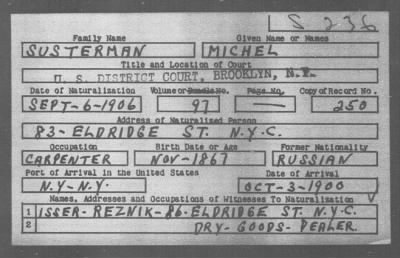 L S 236
Family Name Given Name or Names
SUSTERMAN MICHEL
Title and Location of Court
U. S. DISTRICT COURT, BROOKLYN, N.Y.
Date of Naturalization Volume or Bundle No. Page No. Copy of Record No.
SEPT-6-1906 97 — 250
Address of Naturalized Person
83-ELDRIDGE ST. N.Y.C.
Occupation Birth Date or Age Former Nationality
CARPENTER NOV-1867 RUSSIAN
Port of Arrival in the United States Date of Arrival
N.Y-N.Y. OCT-3-1900
Names, Addresses and Occupations of Witnesses To Naturalization
1 ISSER-REZNIK-86-ELDRIDGE ST. N.Y.C.
2 DRY-GOODS-DEALER